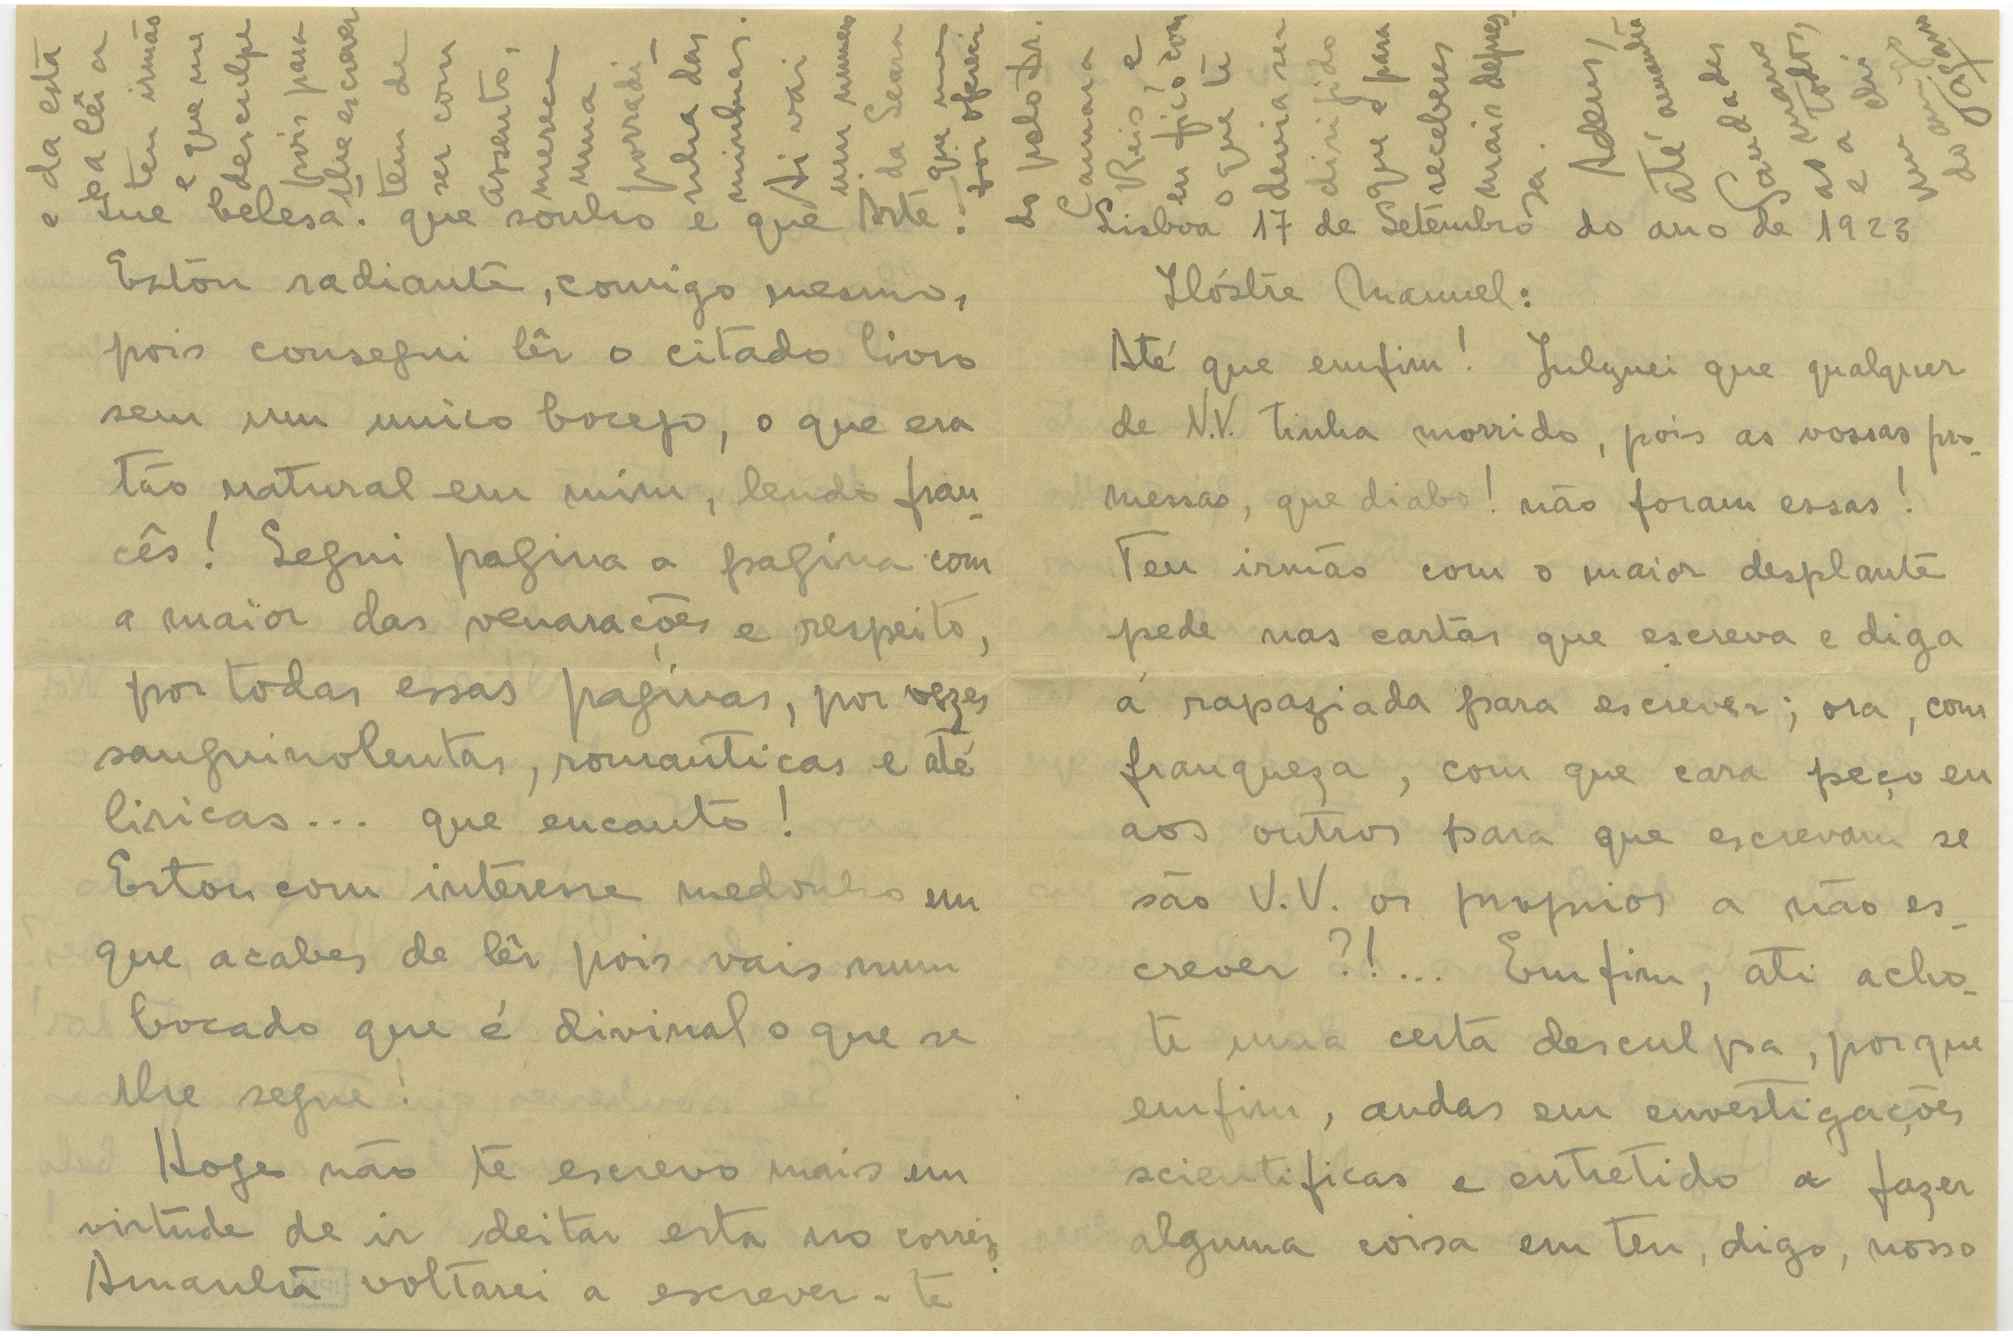 Lisboa 17 de Setembro do ano de 1923
Ilóstre Manuel:
Até que emfim! Julguei que qualquer
de V.V. tinha morrido, pois as vossas pro-
messas, que diabo! não foram essas!
Teu irmão com o maior desplante
pede nas cartas que escreva e diga
á rapaziada para escrever; ora, com
franqueza, com que cara peço eu
aos outros para que escrevam se
são V.V. os proprios a não es-
crever?!... Emfim, ati acho-
te uma certa desculpa, porque
emfim, andas em envestigações
scientificas e entretido a fazer
alguma coisa em teu, digo, nosso
Que belesa! que sonho e que Arte!
Estou radiante, comigo mesmo,
pois consegui lêr o citado livro
sem um unico bocejo, o que era
tão natural em mim, lendo fran-
cês! Segui pagina a pagina com
a maior das venarações e respeito,
por todas essas paginas, por vezes
sanguinolentas, romanticas e até
liricas... que encanto!
Estou com interesse medonho em
que acabes de lêr pois vais num
bocado que é divinal o que se
lhe segue!
Hoje não te escrevo mais em
virtude de ir deitar esta no correio.
Amanhã voltarei a escrever-te
e da esta
a lêr a
teu irmão
e que me
desculpe
pois para
lhe escrever
tem de
ser com
assento,
merece
uma
porradi-
nha das
minhas.
Ai vai
um numero
da Seara
que me
foi ofereci
do pelo Dr.
Camara
Reis, e
eu fico com
o que te
devia ser
dirijido
que é para
receberes
mais depres
sa.
Adeus,
até amanhã
Saudades
as manas
e a todos
e a ele
um
do amigo